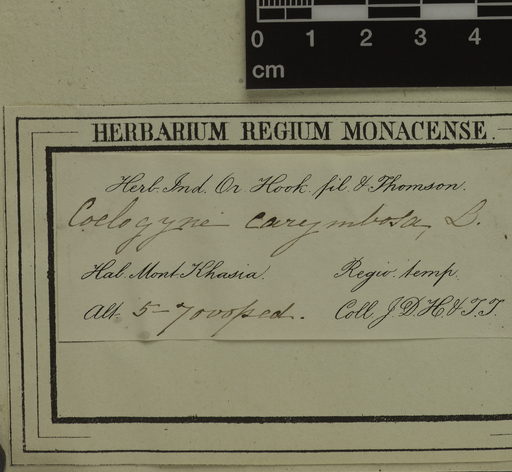 0 1 2 3 4
cm
HERBARIUM REGIUM MONACENSE.
Herb. Ind. Or. Hook. fil. & Thomson.
Coelogyne corymbosa, L.
Hab. Mont Khasia. Regio. temp.
Alt. 5-7000 ped. Coll. J.D.H. & T.T.